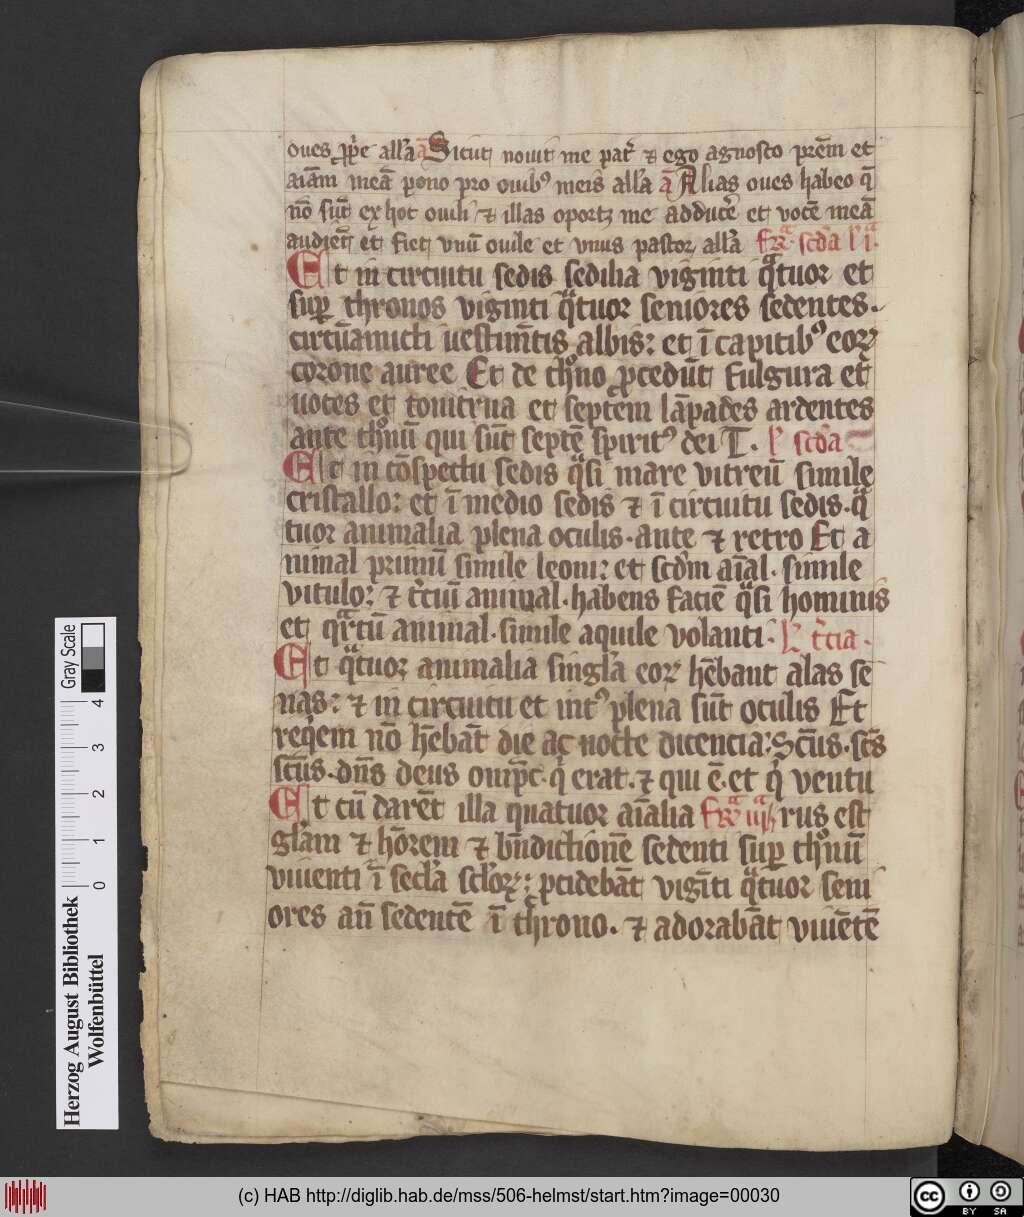 oues ꝓp̃e all'a ā Sicut nouit me pat̉ ⁊ ego agnosco prēm et
aīam meā pōno pro ouibꝰ meis all'a ā Alias oues habeo q̄
nō sūt ex hoc ouili ⁊ illas oportꝫ me adducē et vocē meā
audiēt et fiet vnū ouile et vnus pastor all'a scd'a l' iͣ
Et in circuitu sedis sedilia viginti qͣtuor et
suꝑ thronos viginti qͣtuor seniores sedentes.
circūamicti uestimētis albis: et ī capitibꝰ eoꝝ
corone auree Et de thͦno ꝓcedūt fulgura et
uoces et tonitrua et septem lāpades ardentes
ante thͦnū qui sūt septē spiritꝰ dei T. l' scd'a
Et in cōspectu sedis qͣsi mare vitreū simile
cristallo: et ī medio sedis ⁊ ī circuitu sedis. qͣ
tuor animalia plena oculis. ante ⁊ retro Et a
nimal primū simile leoni: et scd'm aīal. simile
vitulo: ⁊ t̉ciū animal. habens faciē qͣsi hominis
et qͣrtū animal. simile aquile volanti. l' t̉cia.
Et qͣtuor animalia singl'a eoꝝ hēbant alas se
nas: ⁊ in circuitu et intꝰ plena sūt oculis Et
reqͥem nō hēbāt die ac nocte dicencia: Scūs. scūs
scūs. dn̄s deus omp̄c. qͥ erat. ⁊ qui ē. et qͥ ventu
Et cū darēt illa quatuor aīalia rus est
gl'am ⁊ hōrem ⁊ bn̄dictionē sedenti suꝑ thͦnū
viuenti ī secl'a scl'oꝝ: ꝓcidebāt vigīti qͣtuor seni
ores an̄ sedentē ī throno. ⁊ adorabāt viuētē
Gray Scale
4
3
2
1
0
Herzog August Bibliothek
Wolfenbüttel
(c) HAB http://diglib.hab.de/mss/506-helmst/start.htm?image=00030
cc BY SA